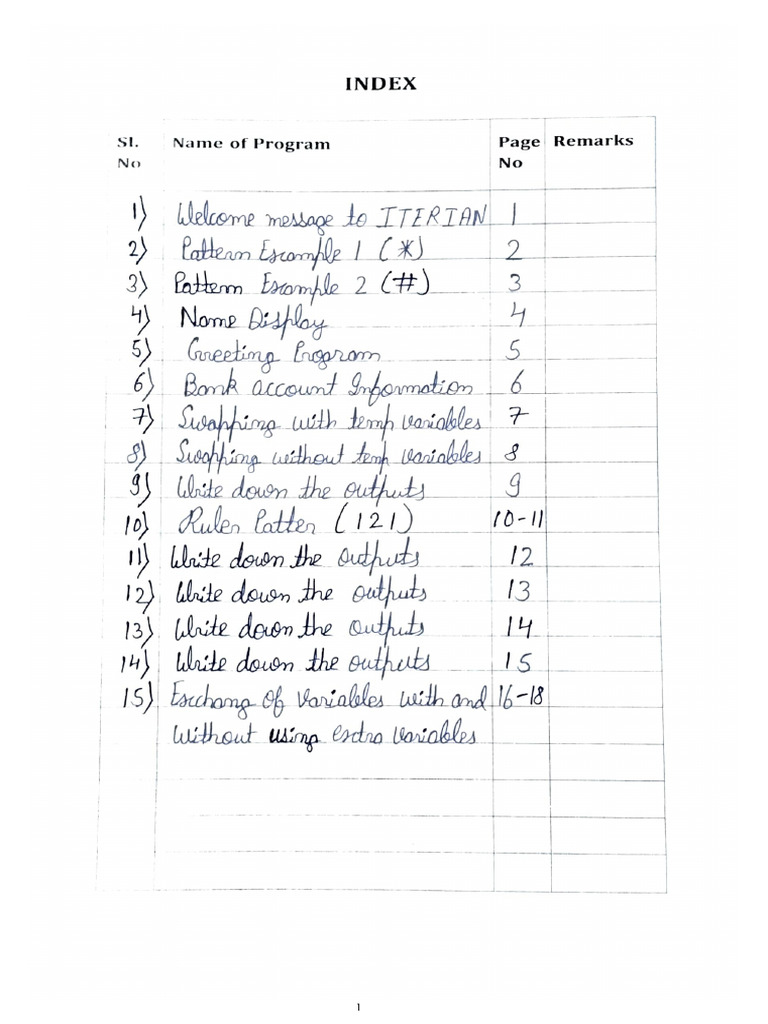 INDEX
Sl. No Name of Program Page No Remarks
1) Welcome message to ITERIAN 1
2) Pattern Example 1 (*) 2
3) Pattern Example 2 (#) 3
4) Name Display 4
5) Greeting Program 5
6) Bank account Information 6
7) Swapping with temp variables 7
8) Swapping without temp variables 8
9) Write down the outputs 9
10) Ruler Patter (121) 10-11
11) Write down the outputs 12
12) Write down the outputs 13
13) Write down the outputs 14
14) Write down the outputs 15
15) Exchang of variables with and 16-18
without using extra variables
1